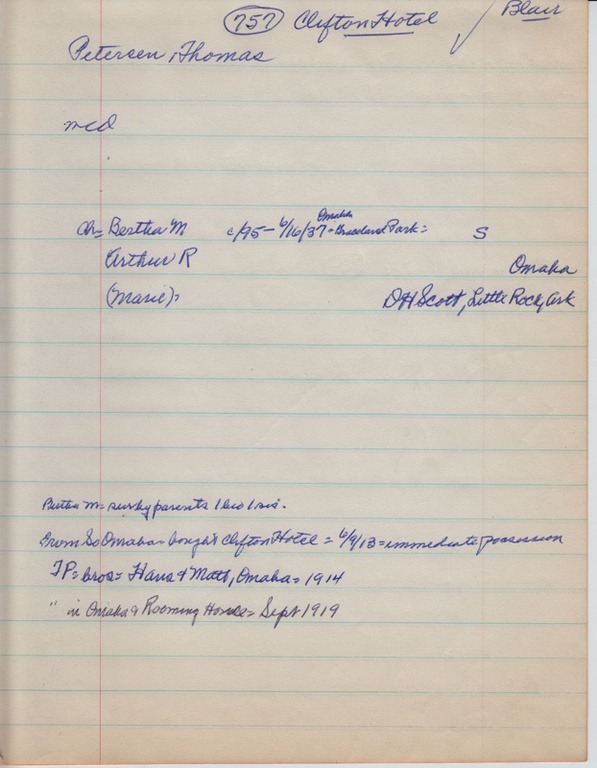 757 Clifton Hotel Blair
Petersen, Thomas
md
Ch= Bertha M c/95 - 6/16/37 = Omaha Graceland Park = S
Arthur R Omaha
(Marie) = D H Scott, Little Rock, Ark
Bertha M = surv by parents 1 bro 1 sis.
From So Omaha = bought Clifton Hotel = 6/9/13 = immediate possession
TP = bros = Hans & Matt, Omaha = 1914
" in Omaha & Rooming House = Sept 1919